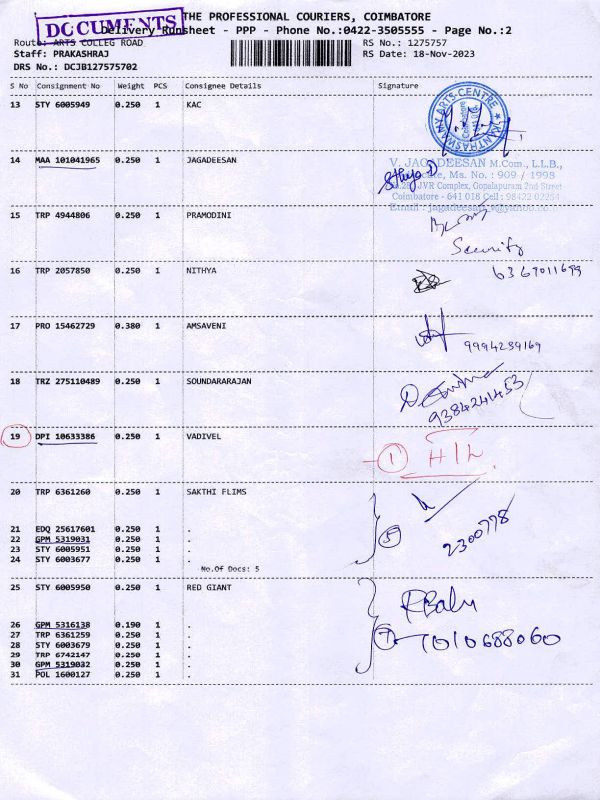 DOCUMENTS
THE PROFESSIONAL COURIERS, COIMBATORE
Delivery Runsheet - PPP - Phone No.:0422-3505555 - Page No.:2
Route: ARTS COLLEG ROAD RS No.: 1275757
Staff: PRAKASHRAJ RS Date: 18-Nov-2023
DRS No.: DCJB127575702
S No Consignment No Weight PCS Consignee Details Signature
13 STY 6005949 0.250 1 KAC
ARTS-CENTRE
14 MAA 101041965 0.250 1 JAGADEESAN
V. JAGADEESAN M.Com., L.L.B.,
Ms. No. : 909 / 1998
JVR Complex, Gopalapuram 2nd Street
Coimbatore - 641 018 Cell : 98422 02254
Email : jagadeesan_v@yahoo.co.in
15 TRP 4944806 0.250 1 PRAMODINI
Security
16 TRP 2057850 0.250 1 NITHYA 6367011699
17 PRO 15462729 0.380 1 AMSAVENI
9994239169
18 TRZ 275110489 0.250 1 SOUNDARARAJAN
9384241453
19 DPI 10633386 0.250 1 VADIVEL
1 H/L
20 TRP 6361260 0.250 1 SAKTHI FLIMS
21 EDQ 25617601 0.250 1 .
22 GPM 5319031 0.250 1 . 5 2300778
23 STY 6005951 0.250 1 .
24 STY 6003677 0.250 1 .
No.Of Docs: 5
25 STY 6005950 0.250 1 RED GIANT
RBabu
26 GPM 5316138 0.190 1 .
27 TRP 6361259 0.250 1 .
28 STY 6003679 0.250 1 . 7 1010688060
29 TRP 6742147 0.250 1 .
30 GPM 5319032 0.250 1 .
31 POL 1600127 0.250 1 .